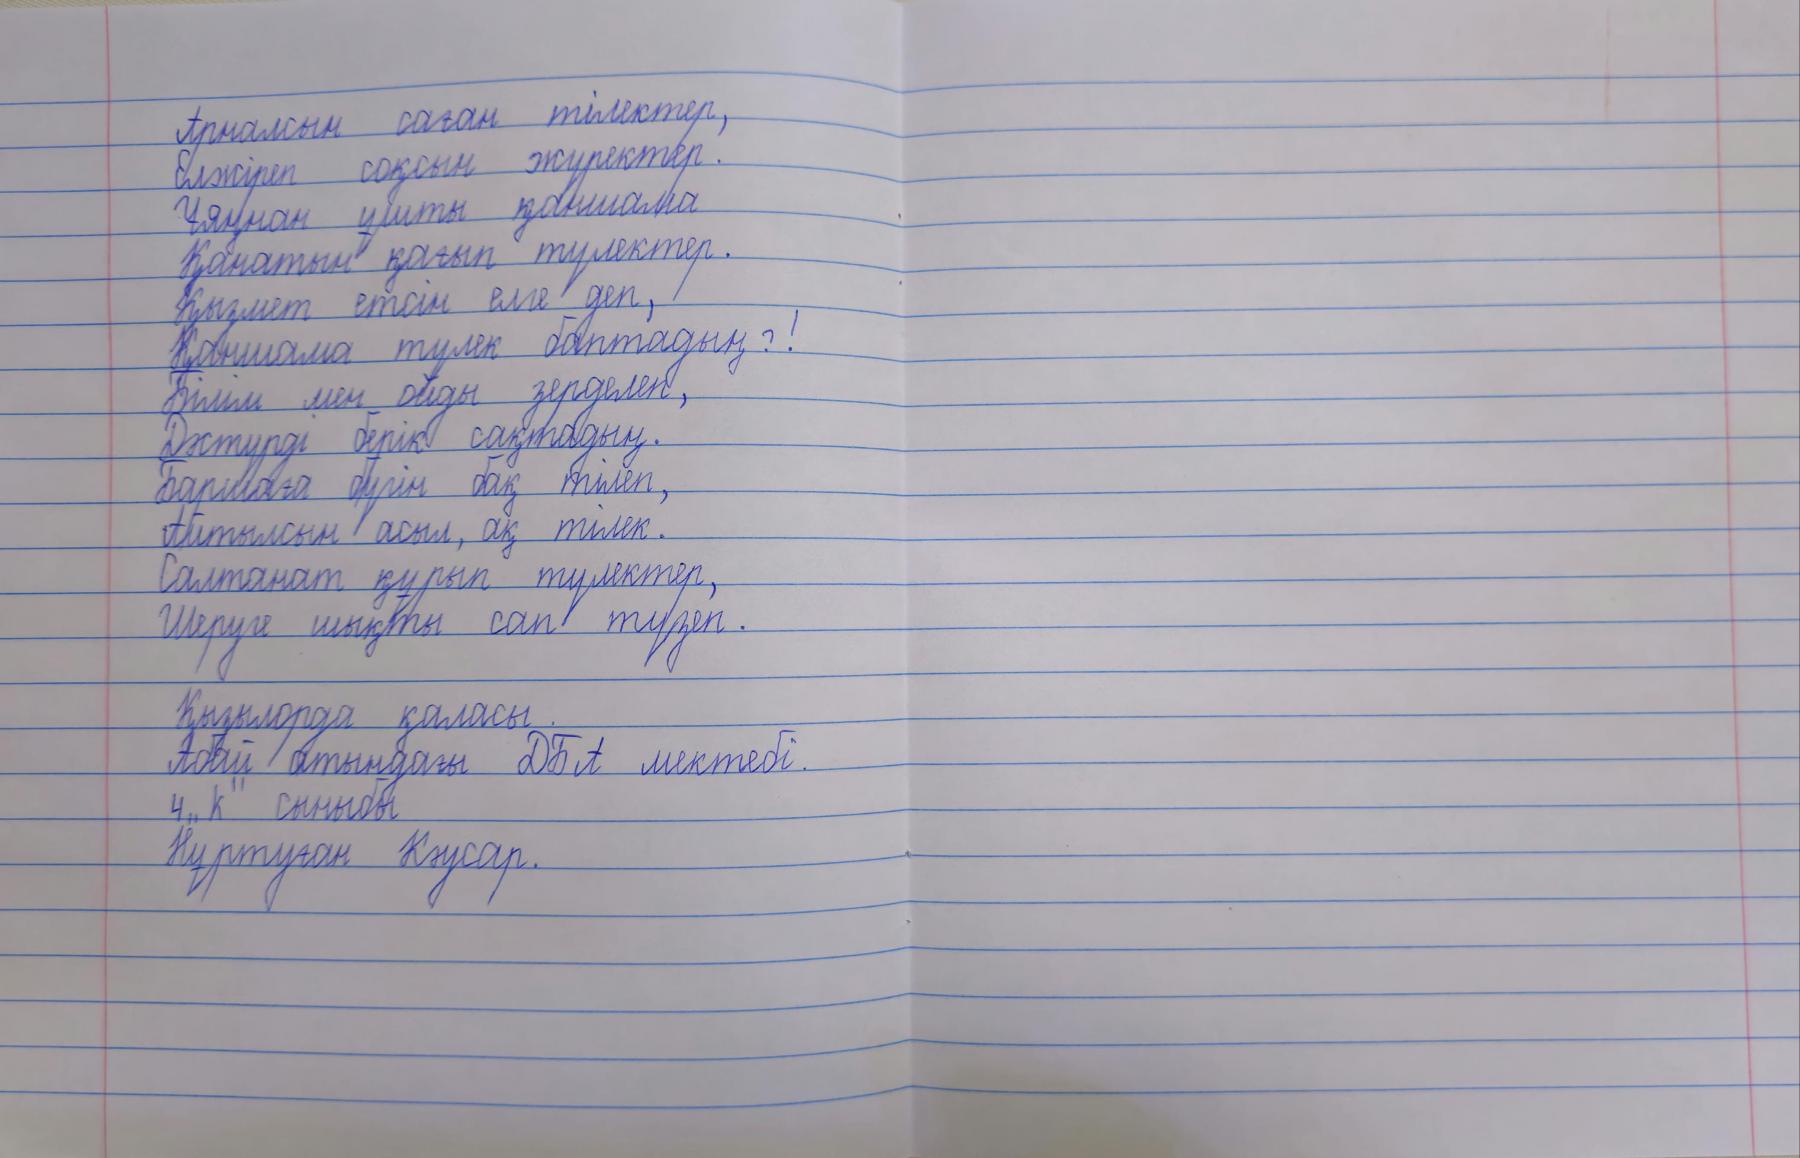 Арналсын саған тілектер,
Елжіреп соқсын жүректер.
Ұяңнан ұшты қаншама
Қанатын қағып түлектер.
Қызмет етсін елге деп,
Қаншама түлек баптадың?!
Білім мен ойды зерделеп,
Дәстүрді берік сақтадың.
Баршаға бүгін бақ тілеп,
Айтылсын асыл, ақ тілек.
Салтанат құрып түлектер,
Шеруге шықты сап түзеп.
Қызылорда қаласы.
Абай атындағы ДБА мектебі.
4 „К" сыныбы
Нұртуған Кәусар.